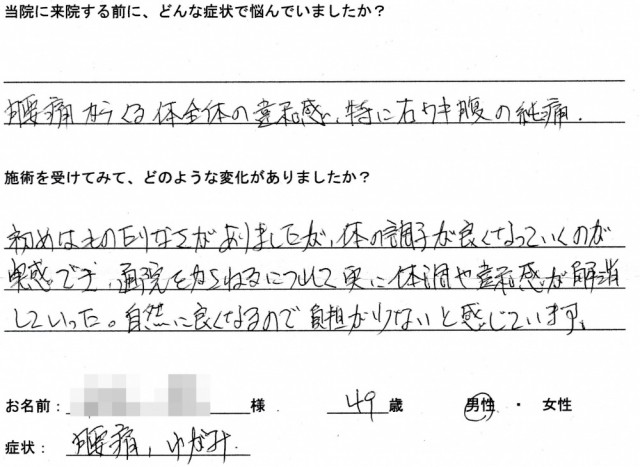 当院に来院する前に、どんな症状で悩んでいましたか？
腰痛からくる体全体の違和感、特に右ワキ腹の鈍痛．
施術を受けてみて、どのような変化がありましたか？
初めはものたりなさがありましたが、体の調子が良くなっていくのが
実感でき、通院をかさねるにつれて更に体調や違和感が解消
していった。自然に良くなるので負担が少ないと感じています。
お名前： 様 49 歳 男性 ・ 女性
症状： 腰痛、ゆがみ